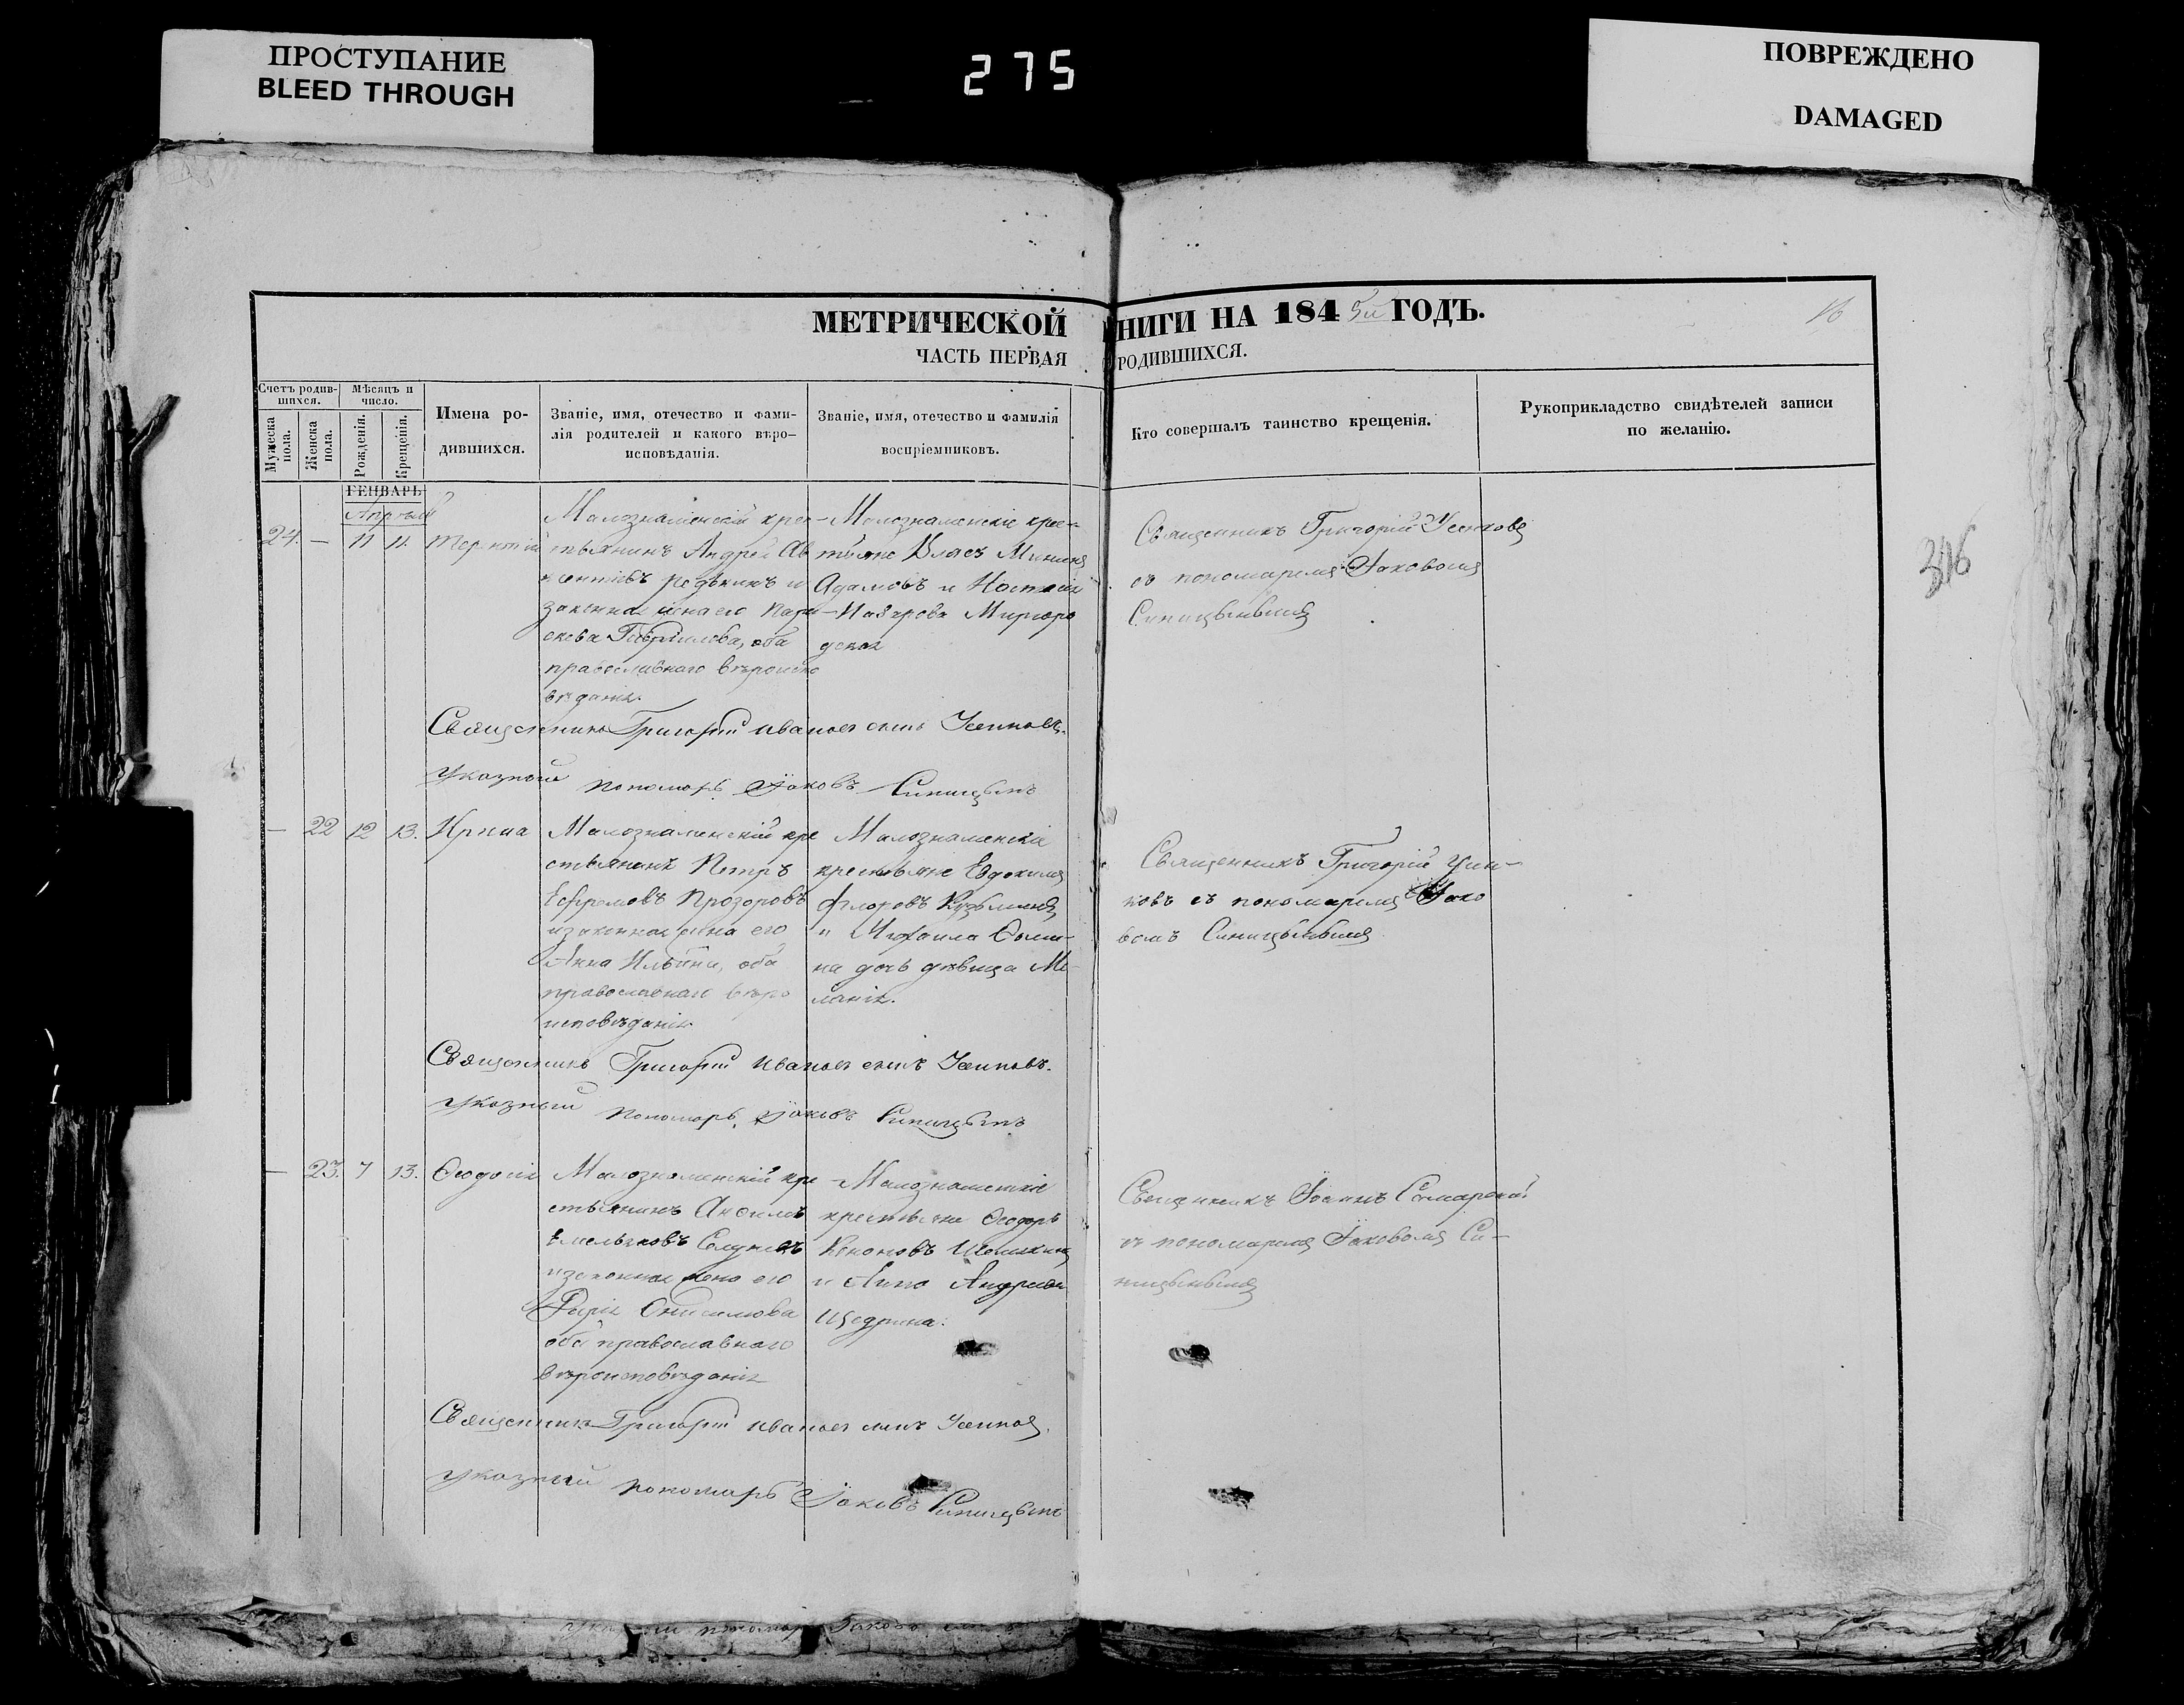 ПРОСТУПАНИЕ
BLEED THROUGH
275
ПОВРЕЖДЕНО
DAMAGED
МЕТРИЧЕСКОЙ КНИГИ НА 1845й ГОДЪ.
16
ЧАСТЬ ПЕРВАЯ РОДИВШИХСЯ.
Счетъ родив-
шихся.
Мужеска
пола.
Женска
пола.
Мѣсяцъ и
число.
Рожденія.
Крещенія.
Имена ро-
дившихся.
Званіе, имя, отечество и фами-
лія родителей и какого вѣро-
исповѣданія.
Званіе, имя, отечество и фамилія
воспріемниковъ.
Кто совершалъ таинство крещенія.
Рукоприкладство свидѣтелей записи
по желанію.
ГЕНВАРЬ
Апрель
24. — 11 11. Терентій
Малознаменскій крес-
тьянинъ Андрей Ав
ксентіевъ Редькинъ и
законная жена его Пара
скева Гаврилова, оба
православнаго вѣроиспо
вѣданія.
Малознаменскіе крес-
тьяне Власъ Мининъ
Адамовъ и Настасія
Назарова Миргоро
дская
Священникъ Григорій Усиновъ
съ пономаремъ Іаковомъ
Синицынымъ
316
Священникъ Григорій Ивановъ сынъ Усиновъ.
указный пономарь Іаковъ Синицынъ
— 22 12 13. Ирина
Малознаменскій кре
стьянинъ Петръ
Ефремовъ Прозоровъ
и законная жена его
Анна Ильина, оба
православнаго вѣро
исповѣданія.
Малознаменскіе
крестьяне Евдокимъ
Флоровъ Кузьминъ
и Михаила Фоми-
на дочь дѣвица Ме
ланія.
Священникъ Григорій Уси-
новъ съ пономаремъ Іако
вомъ Синицынымъ
Священникъ Григорій Ивановъ сынъ Усиновъ.
указный пономарь Іаковъ Синицынъ
— 23. 7 13. Ѳеодосія
Малознаменскій кре
стьянинъ
Емельяновъ
и законная жена его
Дарія Онисимова
оба православнаго
вѣроисповѣданія
Малознаменскіе
крестьяне Ѳеодоръ
Кононовъ
и Анна Андреева
Щедрина.
Священникъ Іоаннъ Самарскій
съ пономаремъ Іаковомъ Си-
ницынымъ
Священникъ Григорій Ивановъ сынъ Усиновъ.
указный пономарь Іаковъ Синицынъ